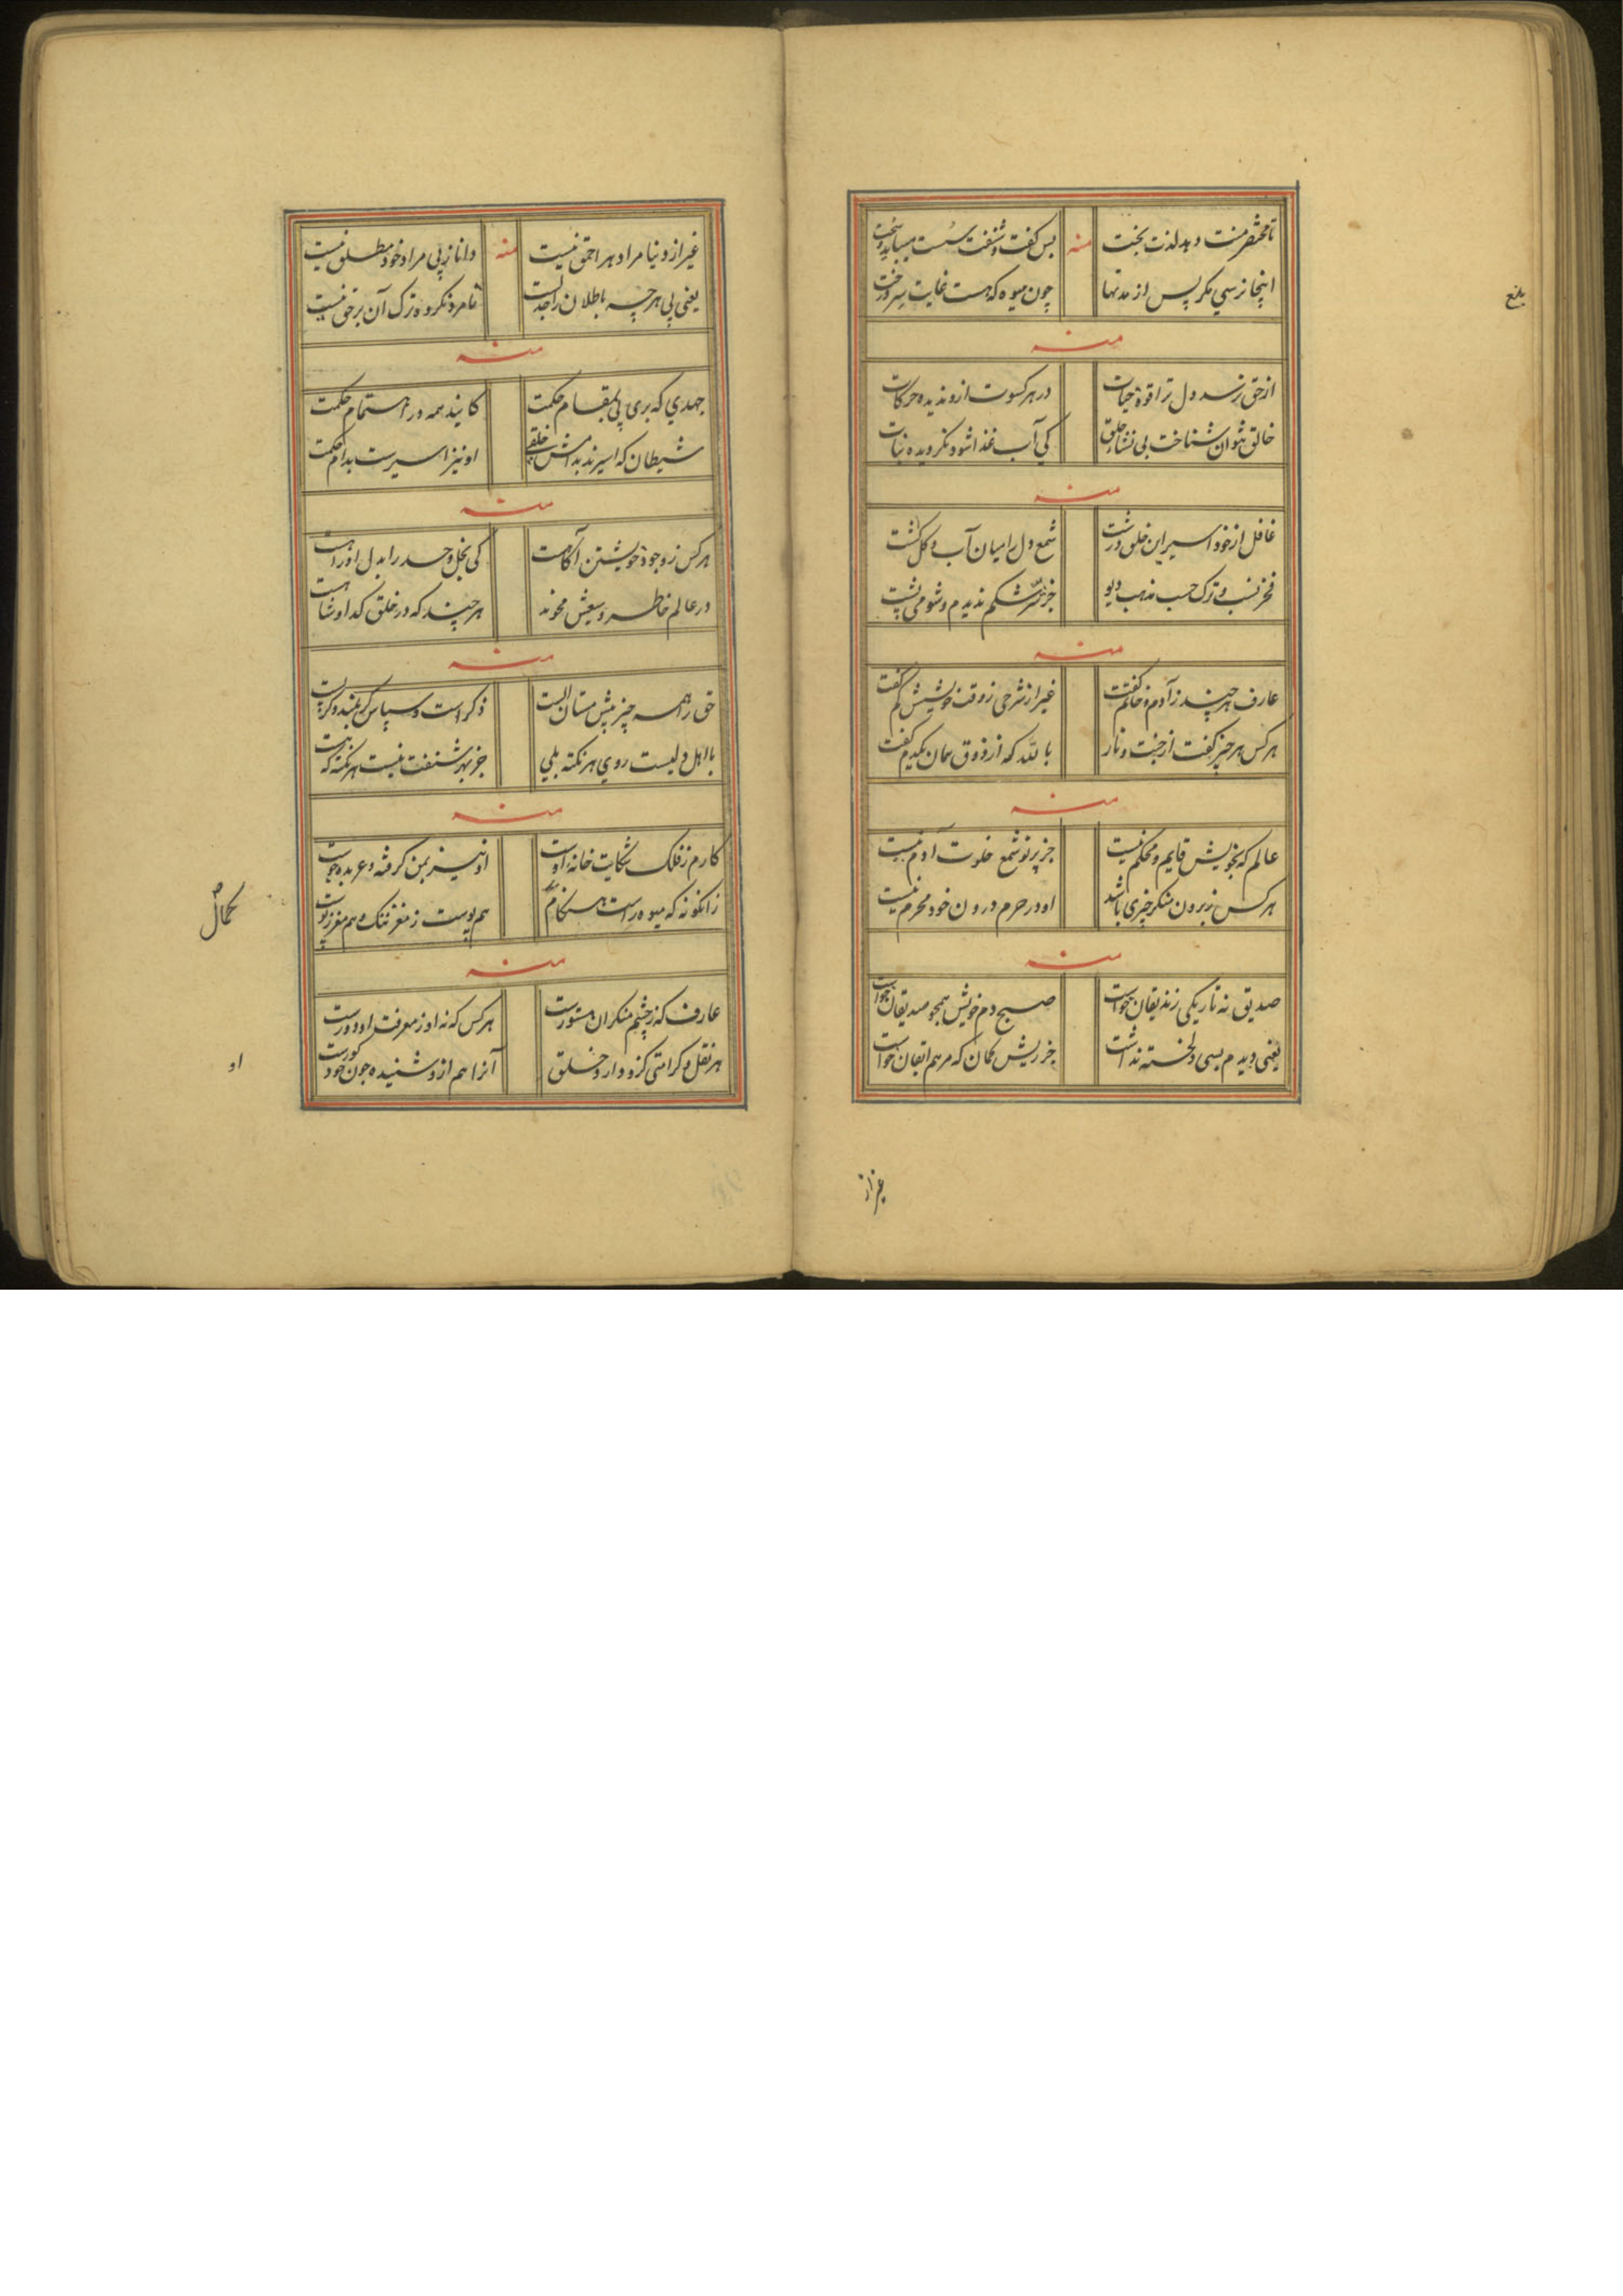 تا مختصر منت دهد لذت بخت منه بس گفت و شنفت سست میباید و سخت
اینجا نرسی مگر پس از مدتها چون میوه که هست غایت سر درخت
منه
از حق نرسد دل ترا قوة حیات در هر کسوت ازو ندیده حرکات
خالق نتوان شناخت بی نشأ خلق کی آب غذا شود نگردیده نبات
منه
غافل از خود اسیر این خلق درشت شمع دل را میان آب و گل کشت
فخر نسب و ترک حسب مذهب دیو جز شکم ندیدم و شومی پشت
منه
عارف هر چند ز آدم و خاتم گفت غیر از شرحی ز وقت خویشش کم گفت
هر کس هر چیز گفت از جنت و نار بالله که از ذوق همان یکدم گفت
منه
عالم که بخویش قایم و محکم نیست جز پرتو شمع خلوت آدم نیست
هر کس ز برون منکر چیزی باشد او در حرم درون خود محرم نیست
منه
صدیق نه تاریکی زندیقان خواست صبح دم خویش همچو صدیقان خواست
یعنی دیدم بسی دلخسته نداشت جز ریش گمان که مرهم ایقان خواست
غیر از
بلغ
غیر از دنیا مراد هر احمق نیست منه دانا ز پی مراد خود مطلق نیست
یعنی پی هر چه باطلان را جدلست تا مرد نکرده ترک آن بر حق نیست
منه
جهدی که بری پی بمقام حکمت کایند همه در اهتمام حکمت
شیطان که اسیرند بدامش خلقی او نیز اسیرست بدام حکمت
منه
هر کس ز وجود خویشتن آگاهست کی بخل و حسد را بدل او راهست
در عالم خاطر وسیعش محوند هر چند که در خلق گدا و شاهست
منه
حق را همه چیز پیش مستان الست ذکر است و سپاس گر بلند و گر پست
با اهل دلیست روی هر نکته بلی جز بهر شنفت نیست هر نکته که هست
منه
کارم ز فلک شکایت خانه اوست او نیز بمن گرفته و عربده جوست
زانگونه که میوه راست هنگام هم پوست ز مغز تنگ و هم مغز ز پوست
منه
عارف که ز چشم منکران مستورست هر کس که نه او ز معرفت او دورست
هر نقل و کرامتی کزو دارد خلق آنرا هم ازو شنیده چون خود کورست
کمال
او